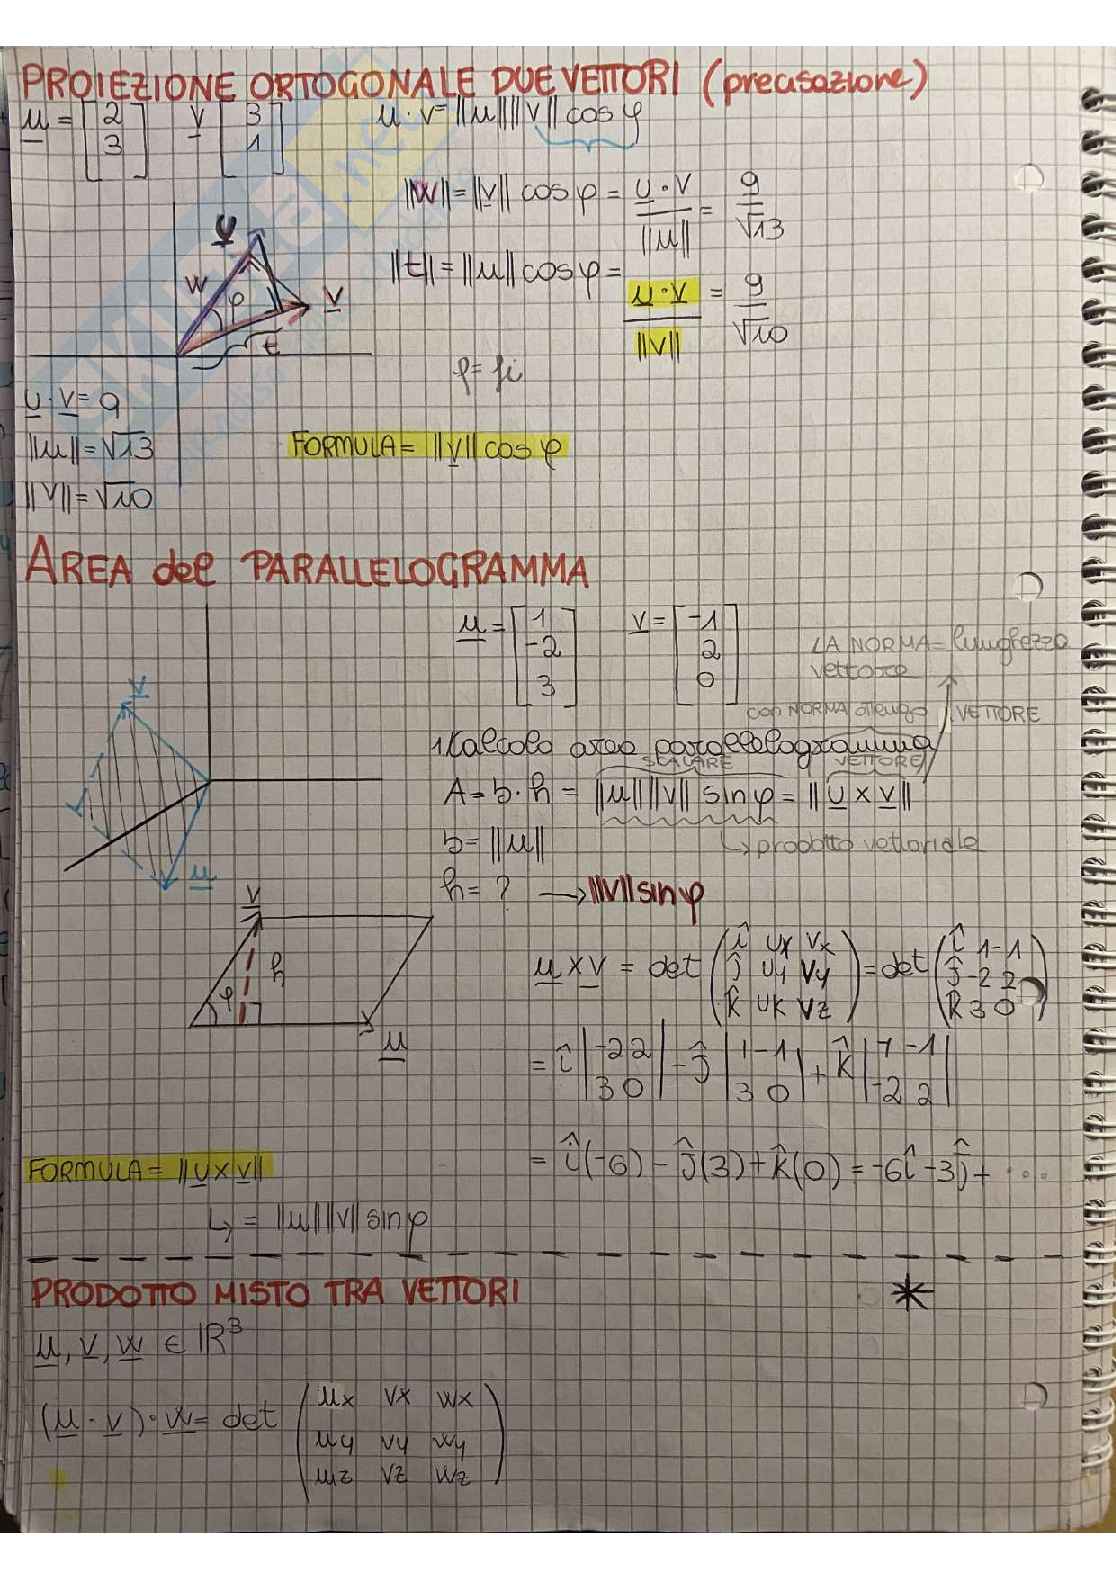 PROIEZIONE ORTOGONALE DUE VETTORI (precisazione)
u = [2 3] v [3 1] u · v = ||u|| ||v|| cos φ
||w|| = ||v|| cos φ = u · v / ||u|| = 9 / √13
||t|| = ||u|| cos φ = u · v / ||v|| = 9 / √10
u
w
φ
v
t
φ = fi
u · v = 9
||u|| = √13
||v|| = √10
FORMULA = ||v|| cos φ
AREA del PARALLELOGRAMMA
u = [1 -2 3] v = [-1 2 0]
LA NORMA = lunghezza
vettore
con NORMA ottengo VETTORE
calcolo area parallelogramma
SCALARE VETTORE
A = b · h = ||u|| ||v|| sin φ = ||u × v||
b = ||u||
↳ prodotto vettoriale
h = ? → ||v|| sin φ
v
u
v
h
φ
u
u × v = det (î ux vx ĵ uy vy k̂ uk vz) = det (î 1 -1 ĵ -2 2 k̂ 3 0)
= î |-2 2 3 0| - ĵ |1 -1 3 0| + k̂ |1 -1 -2 2|
= î(-6) - ĵ(3) + k̂(0) = -6î - 3ĵ + ...
FORMULA = ||u × v||
↳ = ||u|| ||v|| sin φ
PRODOTTO MISTO TRA VETTORI *
u, v, w ∈ ℝ³
(u · v) · w = det (ux vx wx uy vy wy uz vz wz)